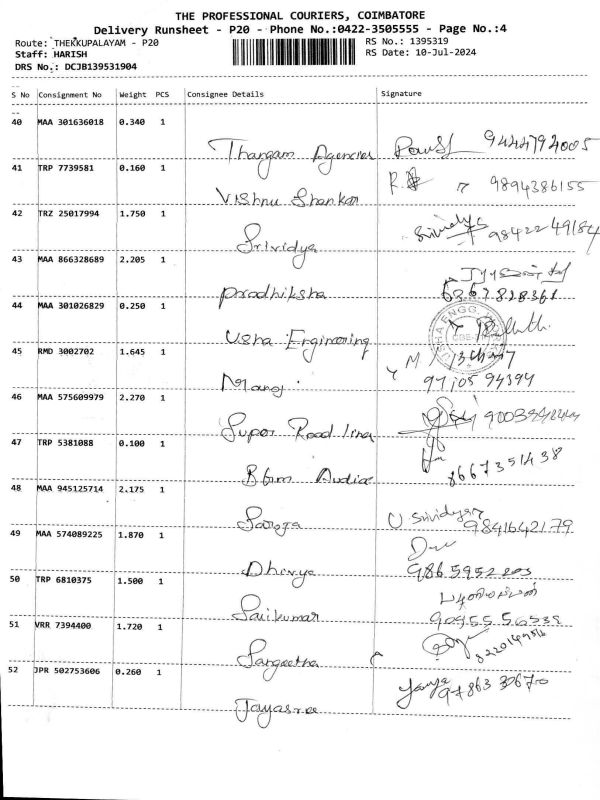 THE PROFESSIONAL COURIERS, COIMBATORE
Delivery Runsheet - P20 - Phone No.:0422-3505555 - Page No.:4
Route: THEKKUPALAYAM - P20
RS No.: 1395319
Staff: HARISH
RS Date: 10-Jul-2024
DRS No.: DCJB139531904
S No Consignment No Weight PCS Consignee Details Signature
40 MAA 301636018 0.340 1
Thangam Agencies 9444794005
41 TRP 7739581 0.160 1
Vishnu Shankar 9894386155
42 TRZ 25017994 1.750 1
Srividya Srividya 9842249184
43 MAA 866328689 2.205 1
Pradhiksha
44 MAA 301026829 0.250 1
Usha Engineering
45 RMD 3002702 1.645 1
Manoj
46 MAA 575609979 2.270 1
Super Road lines
47 TRP 5381088 0.100 1
Audio 8667351438
48 MAA 945125714 2.175 1
Saroja U Srividya 9841642179
49 MAA 574089225 1.870 1
Dhivya
50 TRP 6810375 1.500 1
Saikumar
51 VRR 7394400 1.720 1
Sangeetha
52 JPR 502753606 0.260 1
Jayasree